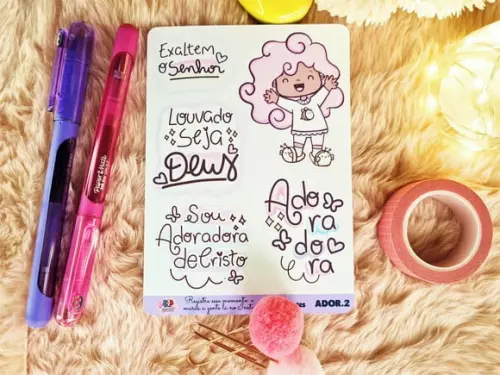 Exaltem
o Senhor
Louvado
Seja
Deus
Sou
Adoradora
de Cristo
Ado
ra
do
ra
Registre seu momento e
ADOR.2